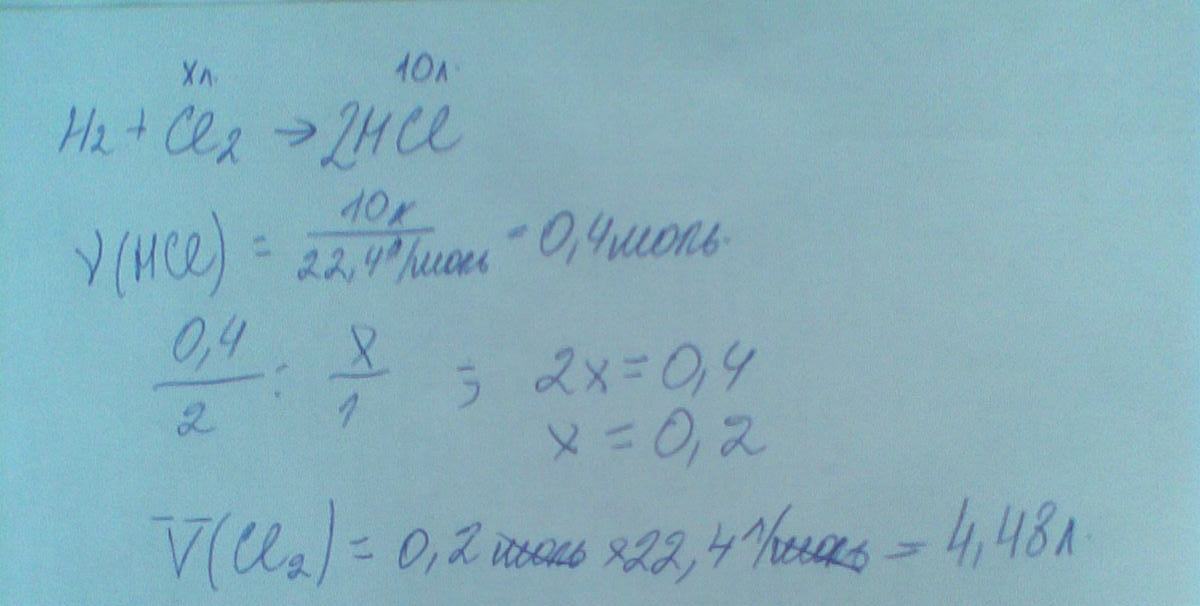 хл. 10л.
H2 + Cl2 → 2HCl
ν(HCl) = 10л / 22,4л/моль = 0,4моль.
0,4/2 : х/1 ; 2х = 0,4
х = 0,2
V(Cl2) = 0,2 моль × 22,4 л/моль = 4,48л.